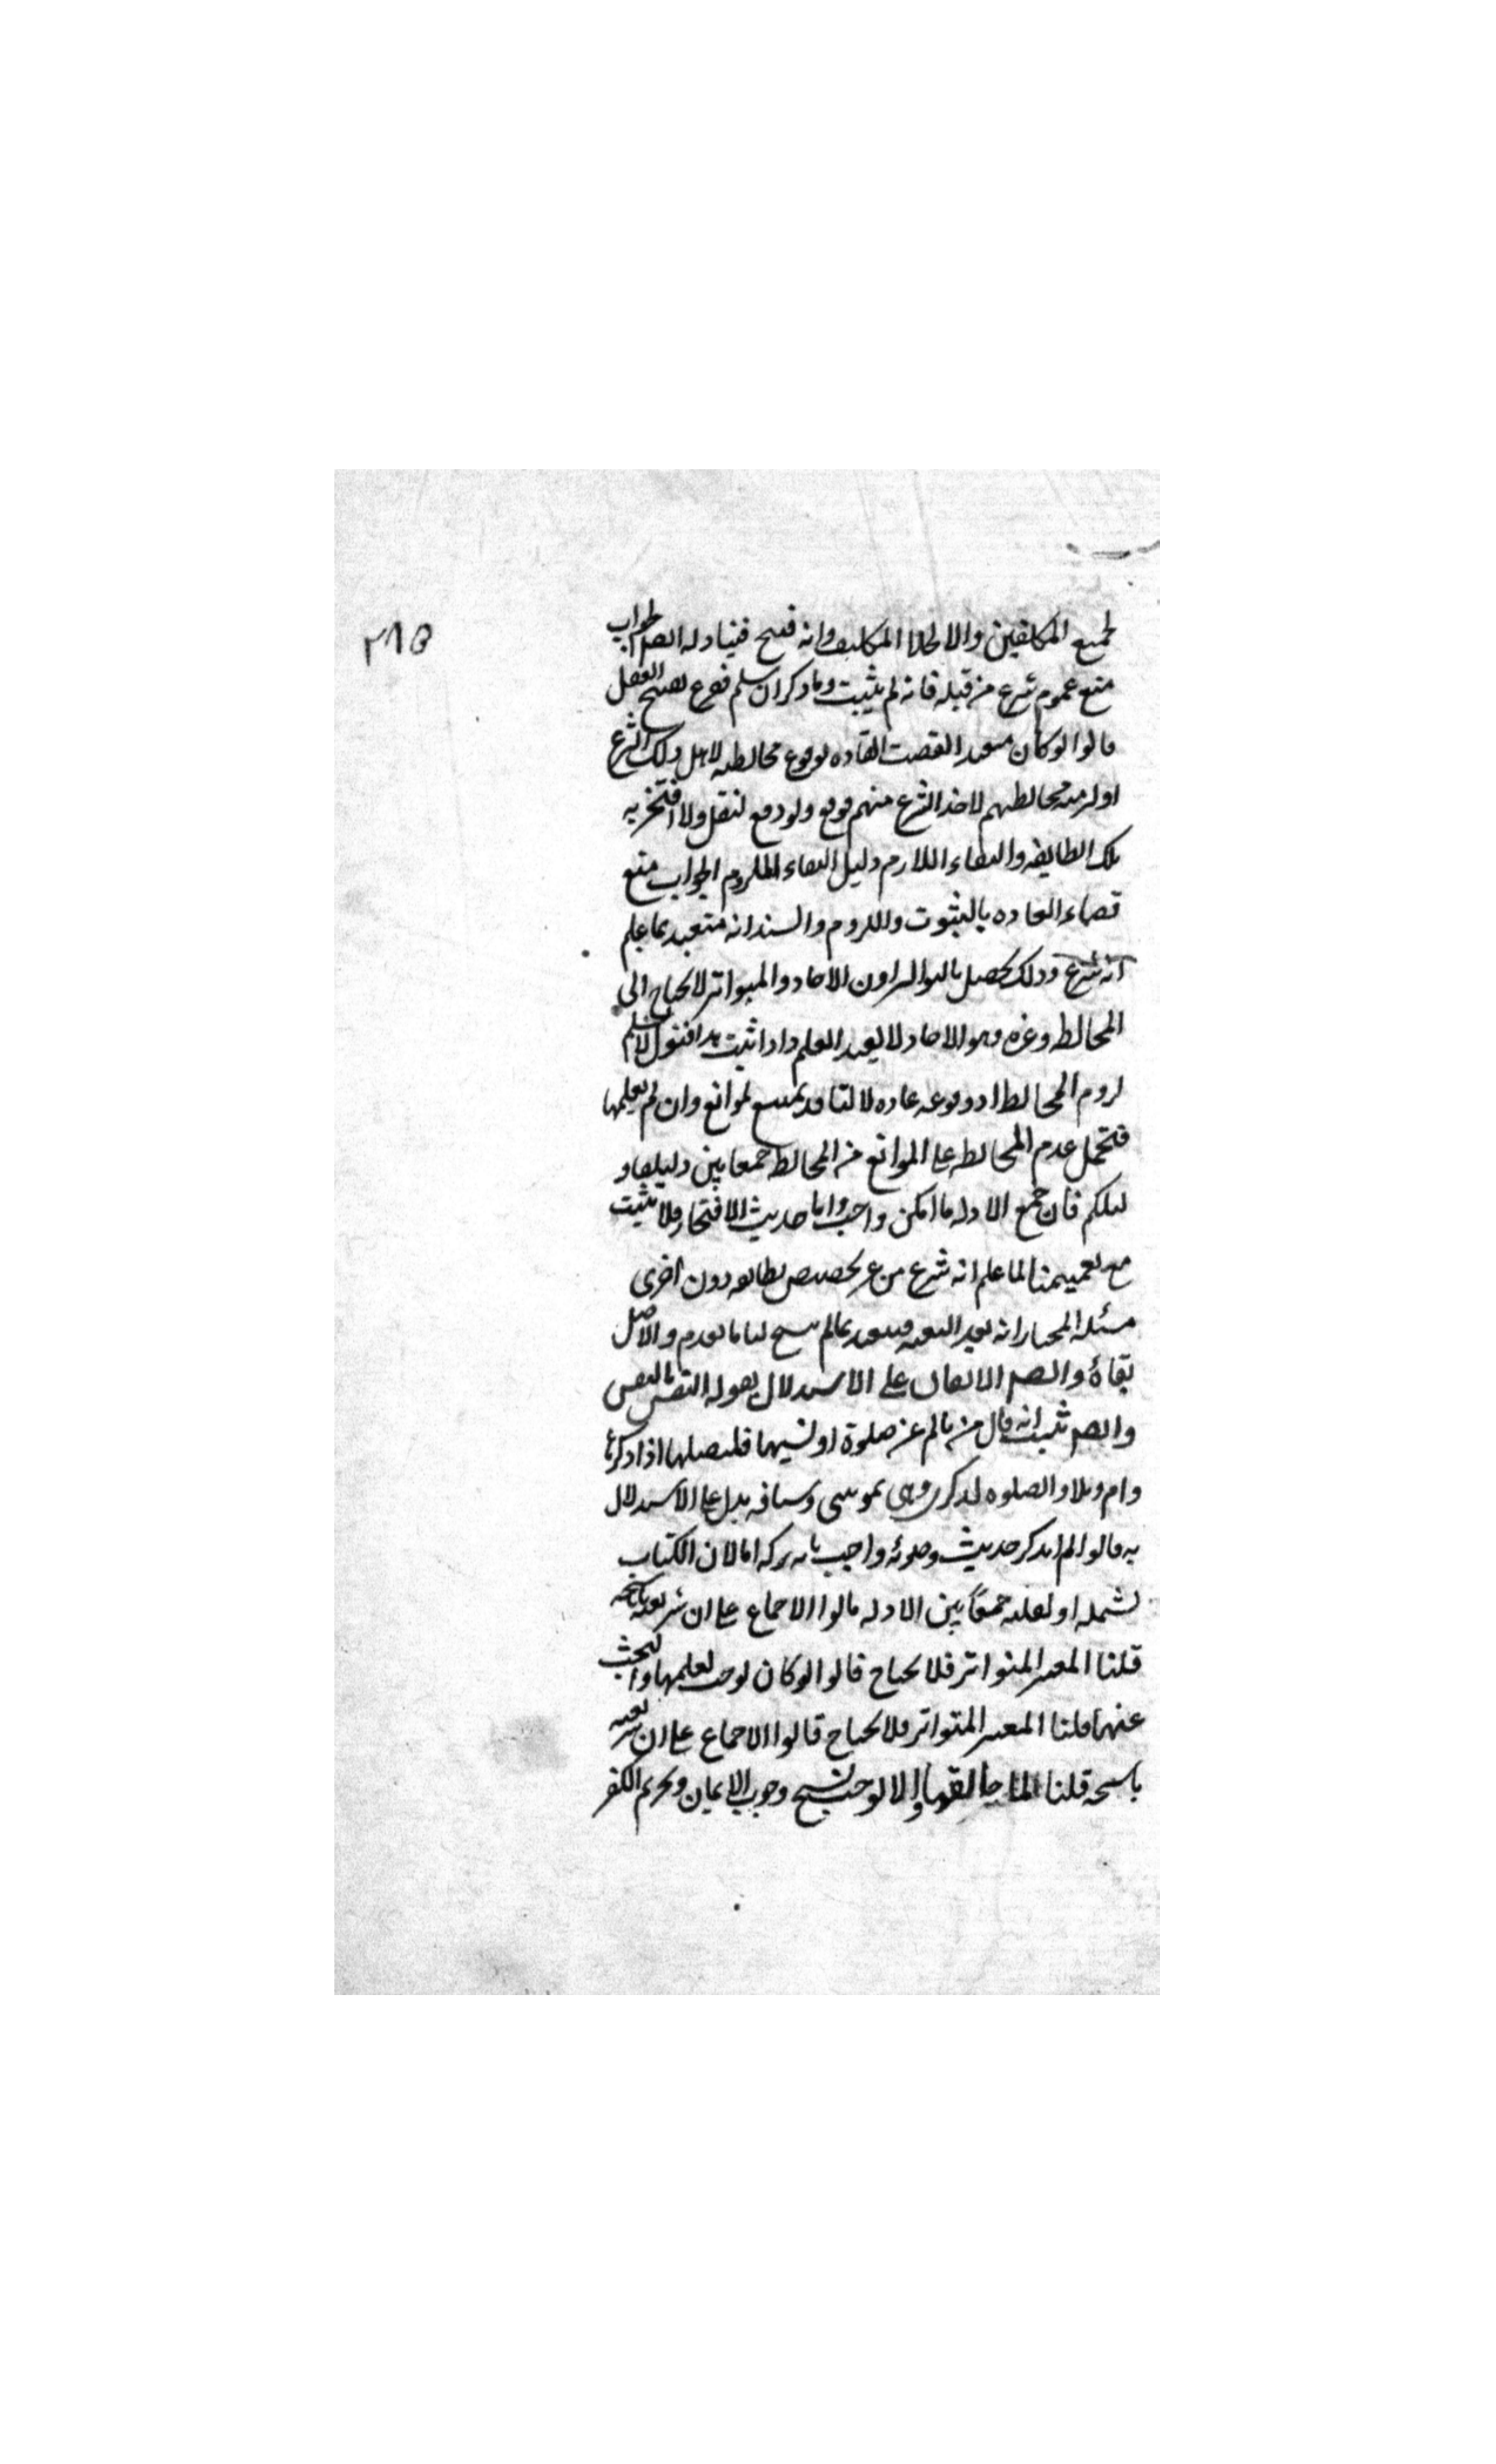 ٢٨٥
لجميع المكلفين والا لخلا المكلف وانه قبيح فيتناوله ايضا الجواب
منع عموم شرع من قبله فانه لم يثبت وما ذكر ان سلم ففرع تقبيح العقل
قالوا لو كان متعبدا لقضت العاده بوقوع مخالطته لاهل ذلك الشرع
او لزمته مخالطتهم لاخذ الشرع منهم ولو وقع لنقل ولا افتخر به
تلك الطايفه وانتفاء اللازم دليل انتفاء الملزوم الجواب منع
قضاء العاده بالثبوت واللزوم والسند انه متعبد بما علم
انه شرع وذلك يحصل بالتواتر دون الاحاد والمتواتر لا يحتاج الى
المخالطه وغيره وهو الاحاد لا يفيد العلم واذا ثبت هذا فنقول لا نسلم
لزوم المخالطه او وقوعه عاده لانها قد تمتنع لموانع وان لم نعلمها
فتحمل عدم المخالطه على الموانع من المخالطه جمعا بين دليلنا و
دليلكم فان جمع الادله ما امكن واجب واما حديث الافتخار فلا يثبت
مع تعميمنا لما علم انه شرع من غير تخصيص بطايفه دون اخرى
مسئله المختار انه بعد البعثه متعبد بما لم ينسخ لنا ما تقدم والاصل
بقاؤه وايضا الاتفاق على الاستدلال بقوله النفس بالنفس
وايضا ثبت انه قال من نام عن صلوة او نسيها فليصلها اذا ذكرها
وتلا واقم الصلوه لذكري وهي لموسى وسياقه يدل على الاستدلال
به قالوا لم يذكر في حديث معاذ وصوبه واجيب بانه تركه اما لان الكتاب
يشمله او لقلته جمعا بين الادله قالوا الاجماع على ان شريعته ناسخه
قلنا المعتبر المتواتر فلا يحتاج قالوا لو كان لوجب تعلمها والبحث
عنها قلنا المعتبر المتواتر فلا يحتاج قالوا الاجماع على ان شريعته
ناسخه قلنا لما خالفها والا لوجب نسخ وجوب الايمان وتحريم الكفر